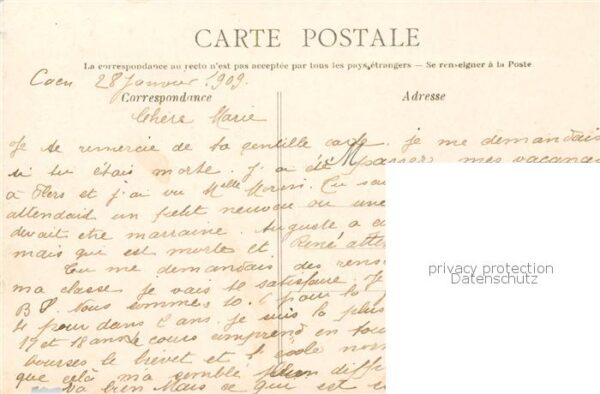 CARTE POSTALE
La correspondance au recto n'est pas acceptée par tous les pays étrangers — Se renseigner à la Poste
Caen 28 Janvier 1909.
Correspondance
Adresse
Chère Marie
Je te remercie de ta gentille carte. je me demandais
si tu étais morte. J'ai été passer mes vacances
à Flers et j'ai vu Melle Tu
attendait un petit neveu ou une
devait être marraine. Auguste a
mais qui est morte et René
Tu me demandais des
ma classe je vais te satisfaire. Je
B S. Nous sommes 10. 6 pour le
4 pour dans 2 ans. je suis la plus
17 et 18 ans le cours comprend en
bourses le brevet et l'école
que celà m'a semblé bien
va bien Mais ce qui est
privacy protection
Datenschutz